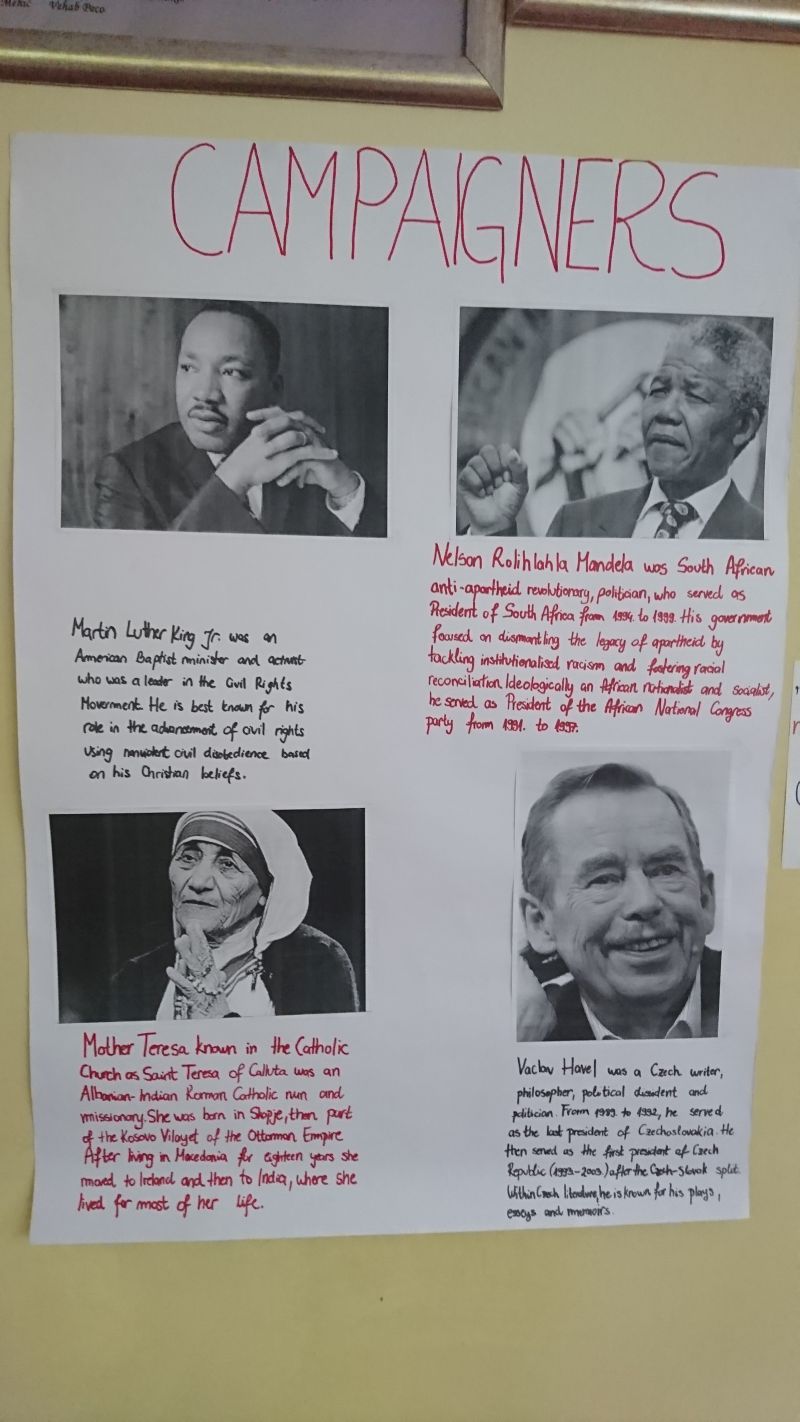 Mehić Vehab Peco
CAMPAIGNERS
Martin Luther King Jr. was an
American Baptist minister and activist
who was a leader in the Civil Rights
Movement. He is best known for his
role in the advancement of civil rights
using nonviolent civil disobedience based
on his Christian beliefs.
Nelson Rolihlahla Mandela was South African
anti-apartheid revolutionary, politician, who served as
President of South Africa from 1994. to 1999. His government
focused on dismantling the legacy of apartheid by
tackling institutionalised racism and fostering racial
reconciliation. Ideologically an African nationalist and socialist,
he served as President of the African National Congress
party from 1991. to 1997.
Mother Teresa known in the Catholic
Church as Saint Teresa of Calluta was an
Albanian-Indian Roman Catholic nun and
missionary. She was born in Skopje, then part
of the Kosovo Vilayet of the Ottoman Empire
After living in Macedonia for eighteen years she
moved to Ireland and then to India, where she
lived for most of her life.
Vaclav Havel was a Czech writer,
philosopher, political dissident and
politician. From 1989. to 1992, he served
as the last president of Czechoslovakia. He
then served as the first president of Czech
Republic (1993-2003.) after the Czech-Slovak split.
Within Czech literature, he is known for his plays,
essays and memoirs.